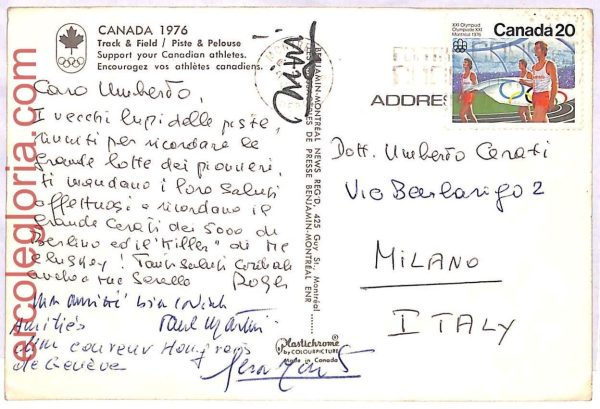 CANADA 1976
Track & Field / Piste & Pelouse
Support your Canadian athletes.
Encouragez vos athlètes canadiens.
Caro Umberto,
I vecchi lupi delle piste,
riuniti per ricordare le
grande lotte dei pionieri,
ti mandano i loro saluti
affettuosi e ricordano il
grande Cerati dei 5000 di
Berlino ed il "Killer" di Mc
Cluskey! Tanti saluti cordiali
anche a tuo fratello Roger
Mon amitié bien cordiale
Amitiés Paul Martin
d'un coureur Hongrois
de Genève
BENJAMIN-MONTRÉAL NEWS REG'D, 425 Guy St., Montréal
DE PRESSE BENJAMIN-MONTRÉAL ENR
Plastichrome
by COLOURPICTURE
Made in Canada
XXI Olympiad
Olympiade XXI
Montréal 1976
Canada 20
ADDRES
Dott. Umberto Cerati
Via Barbarigo 2
MILANO
ITALY
ercolegloria.com